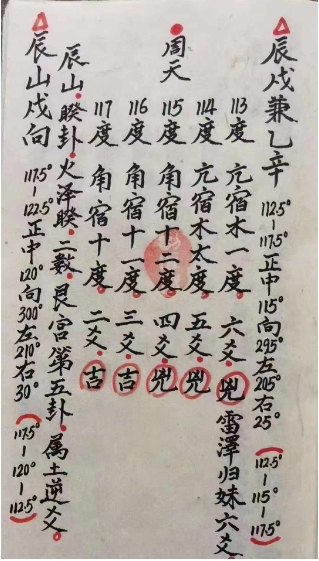 辰戌兼乙辛 112.5°-117.5°正中115°向295°左205°右25° (112.5°-115°-117.5°)
周天
113度 亢宿木一度。六爻。兇 雷澤归妹六爻。
114度 亢宿木太度。五爻。兇
115度 角宿十二度。四爻。兇
116度 角宿十一度。三爻。吉
117度 角宿十度。二爻。吉
辰山.睽卦.火泽睽.二數.艮宮第五卦.属土逆爻。
辰山戌向 117.5°-122.5°正中120°向300°左210°右30° (117.5°-120°-112.5°)